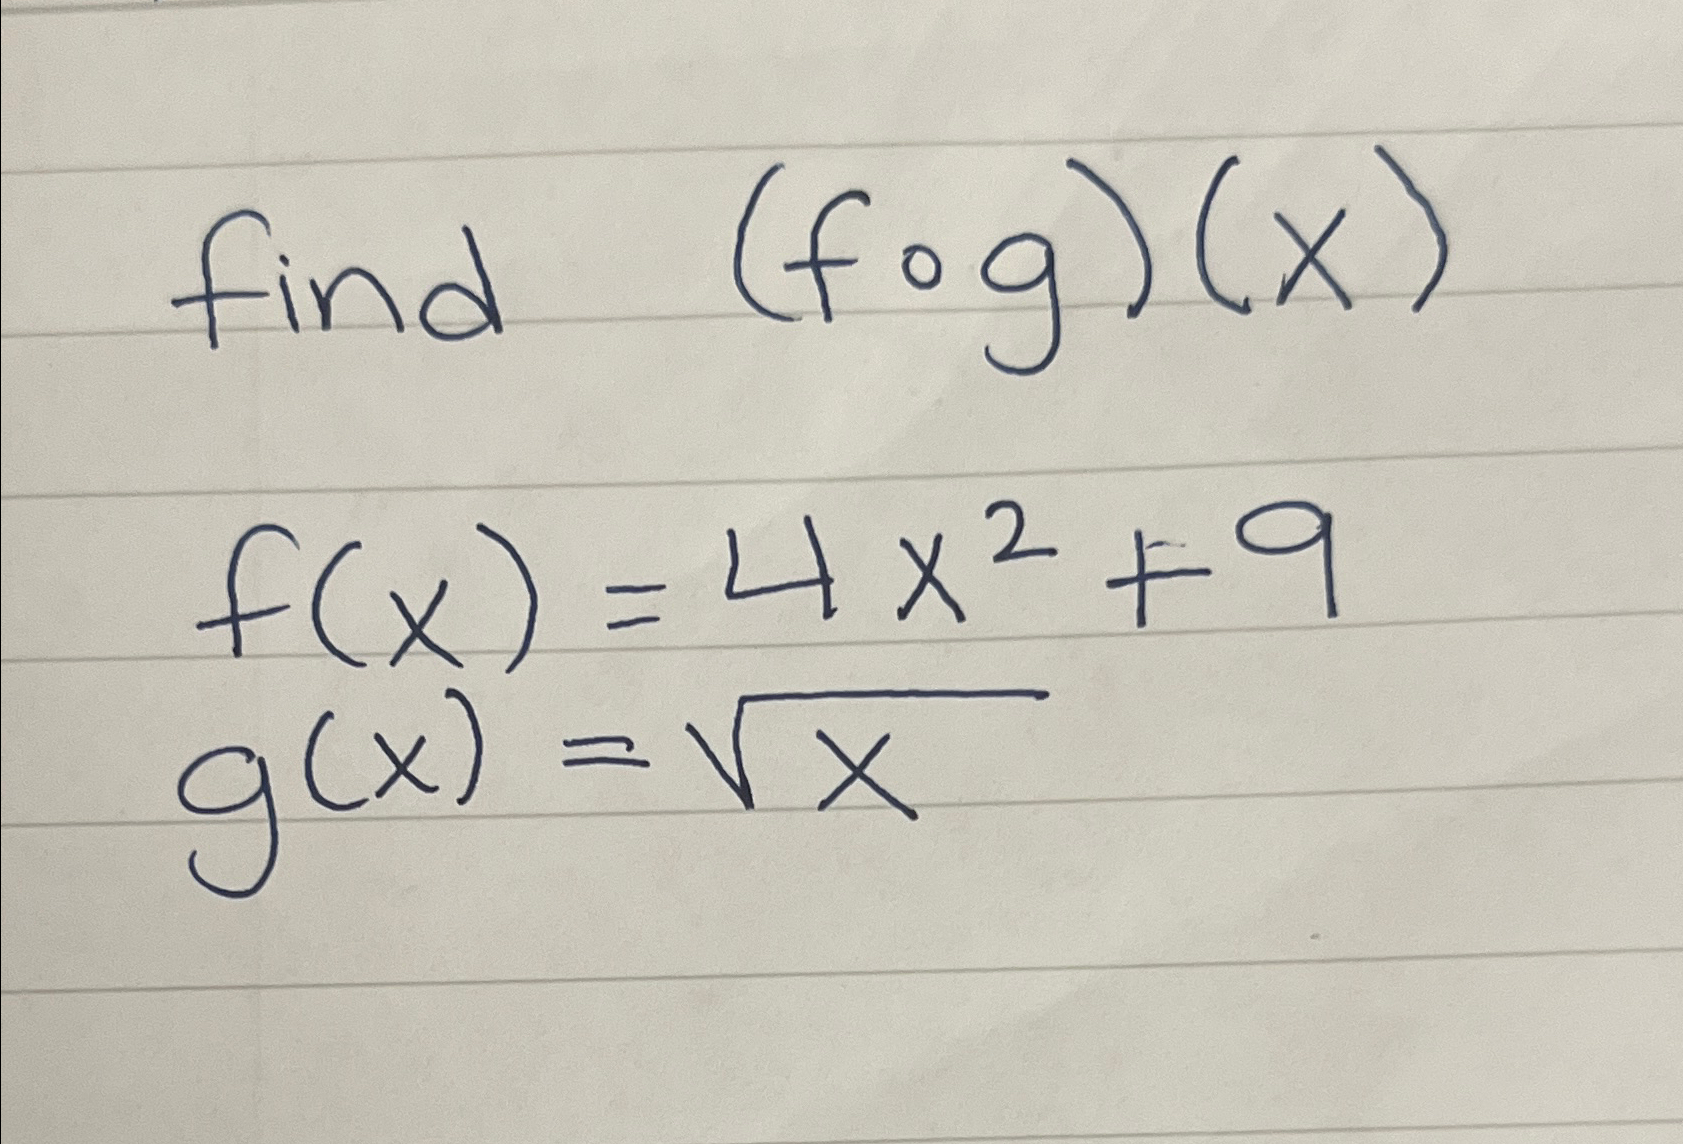 find (f∘g)(x)
f(x) = 4x² + 9
g(x) = √x